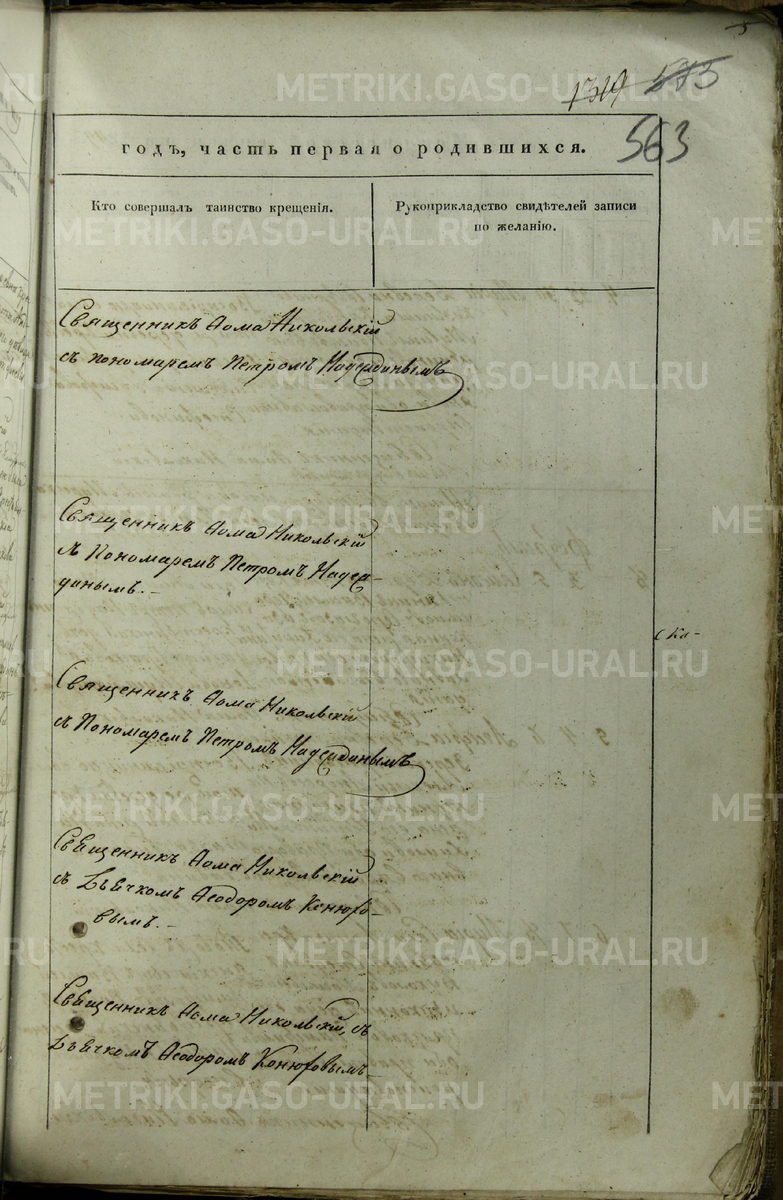 1319 575
563
годъ, часть первая о родившихся.
Кто совершалъ таинство крещенія.
Рукоприкладство свидѣтелей записи
по желанію.
Священникъ Ѳома Никольскій
съ пономаремъ Петромъ Надеждинымъ
Священникъ Ѳома Никольскій
съ Пономаремъ Петромъ Надеж-
динымъ.-
Священникъ Ѳома Никольскій
съ Пономаремъ Петромъ Надеждинымъ
Священникъ Ѳома Никольскій
съ Дьячкомъ Ѳеодоромъ Конюхо-
вымъ.-
Священникъ Ѳома Никольскій, съ
Дьячкомъ Ѳеодоромъ Конюховымъ-
METRIKI.GASO-URAL.RU